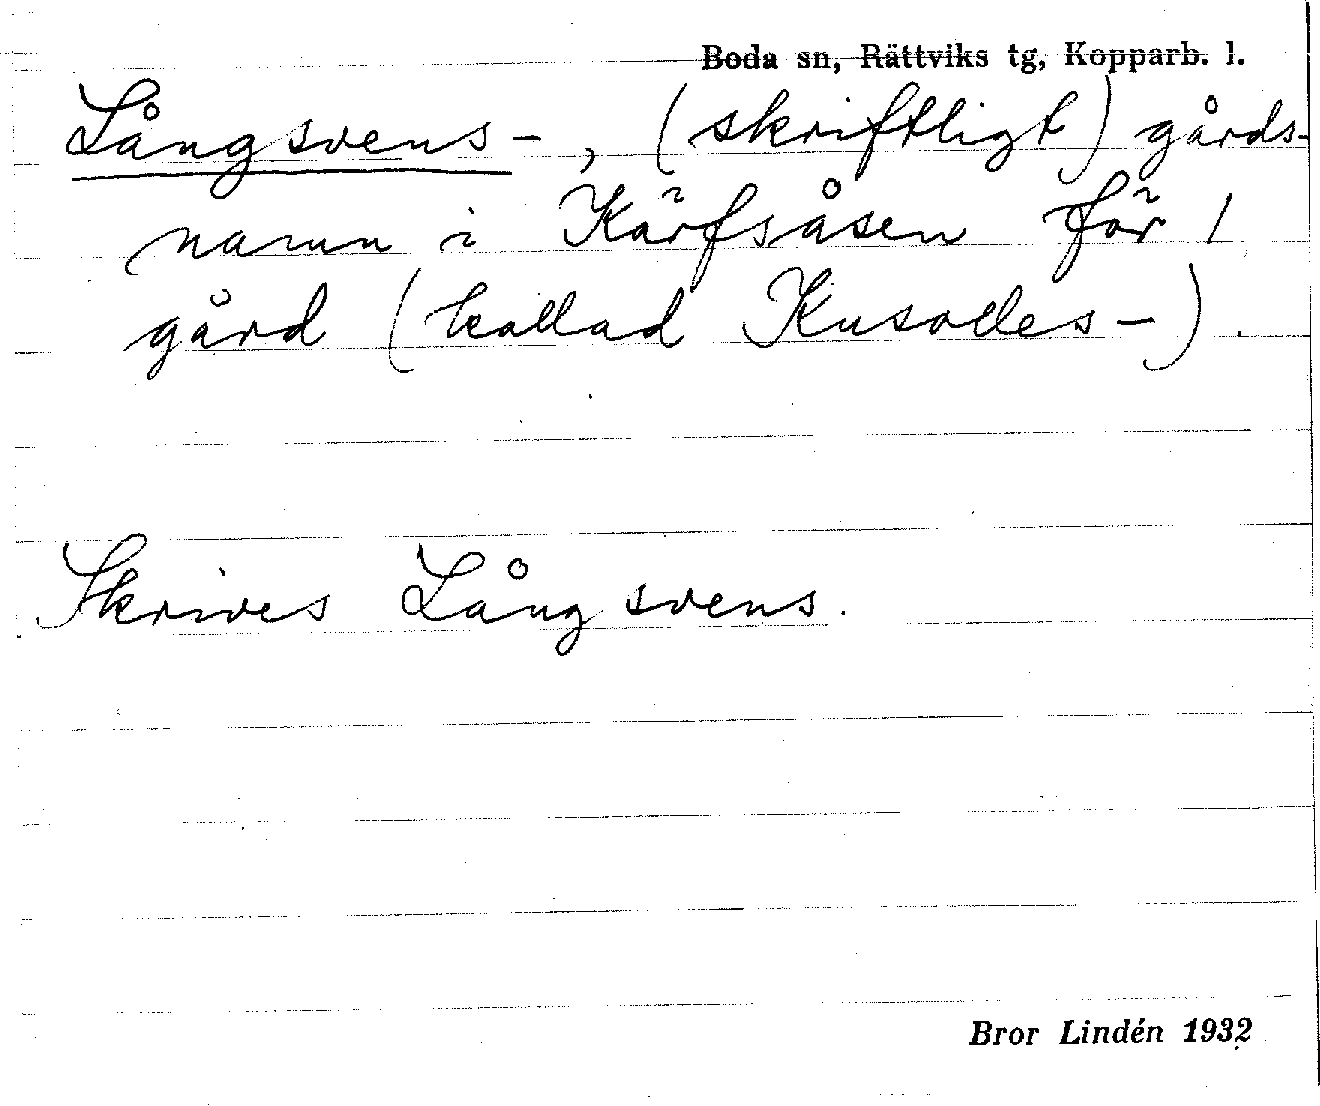 Boda sn, Rättviks tg, Kopparb. l.
Långsvens-, (skriftligt) gårds-
namn i Kärfsåsen för 1
gård (kallad Kusolles-).
Skrives Långsvens.
Bror Lindén 1932